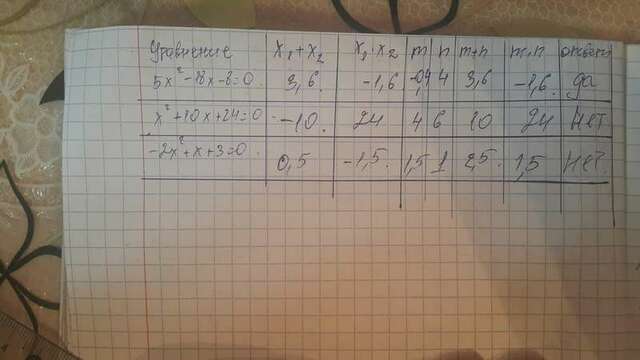 Уравнение x₁+x₂ x₁·x₂ m n m+n m·n ответ
5x²-18x-8=0. 3,6. -1,6 -0,4 4 3,6 -1,6. да
x²+10x+24=0 -10. 24 4 6 10 24 Нет
-2x²+x+3=0. 0,5 -1,5. 1,5 1 2,5. 1,5 Нет.